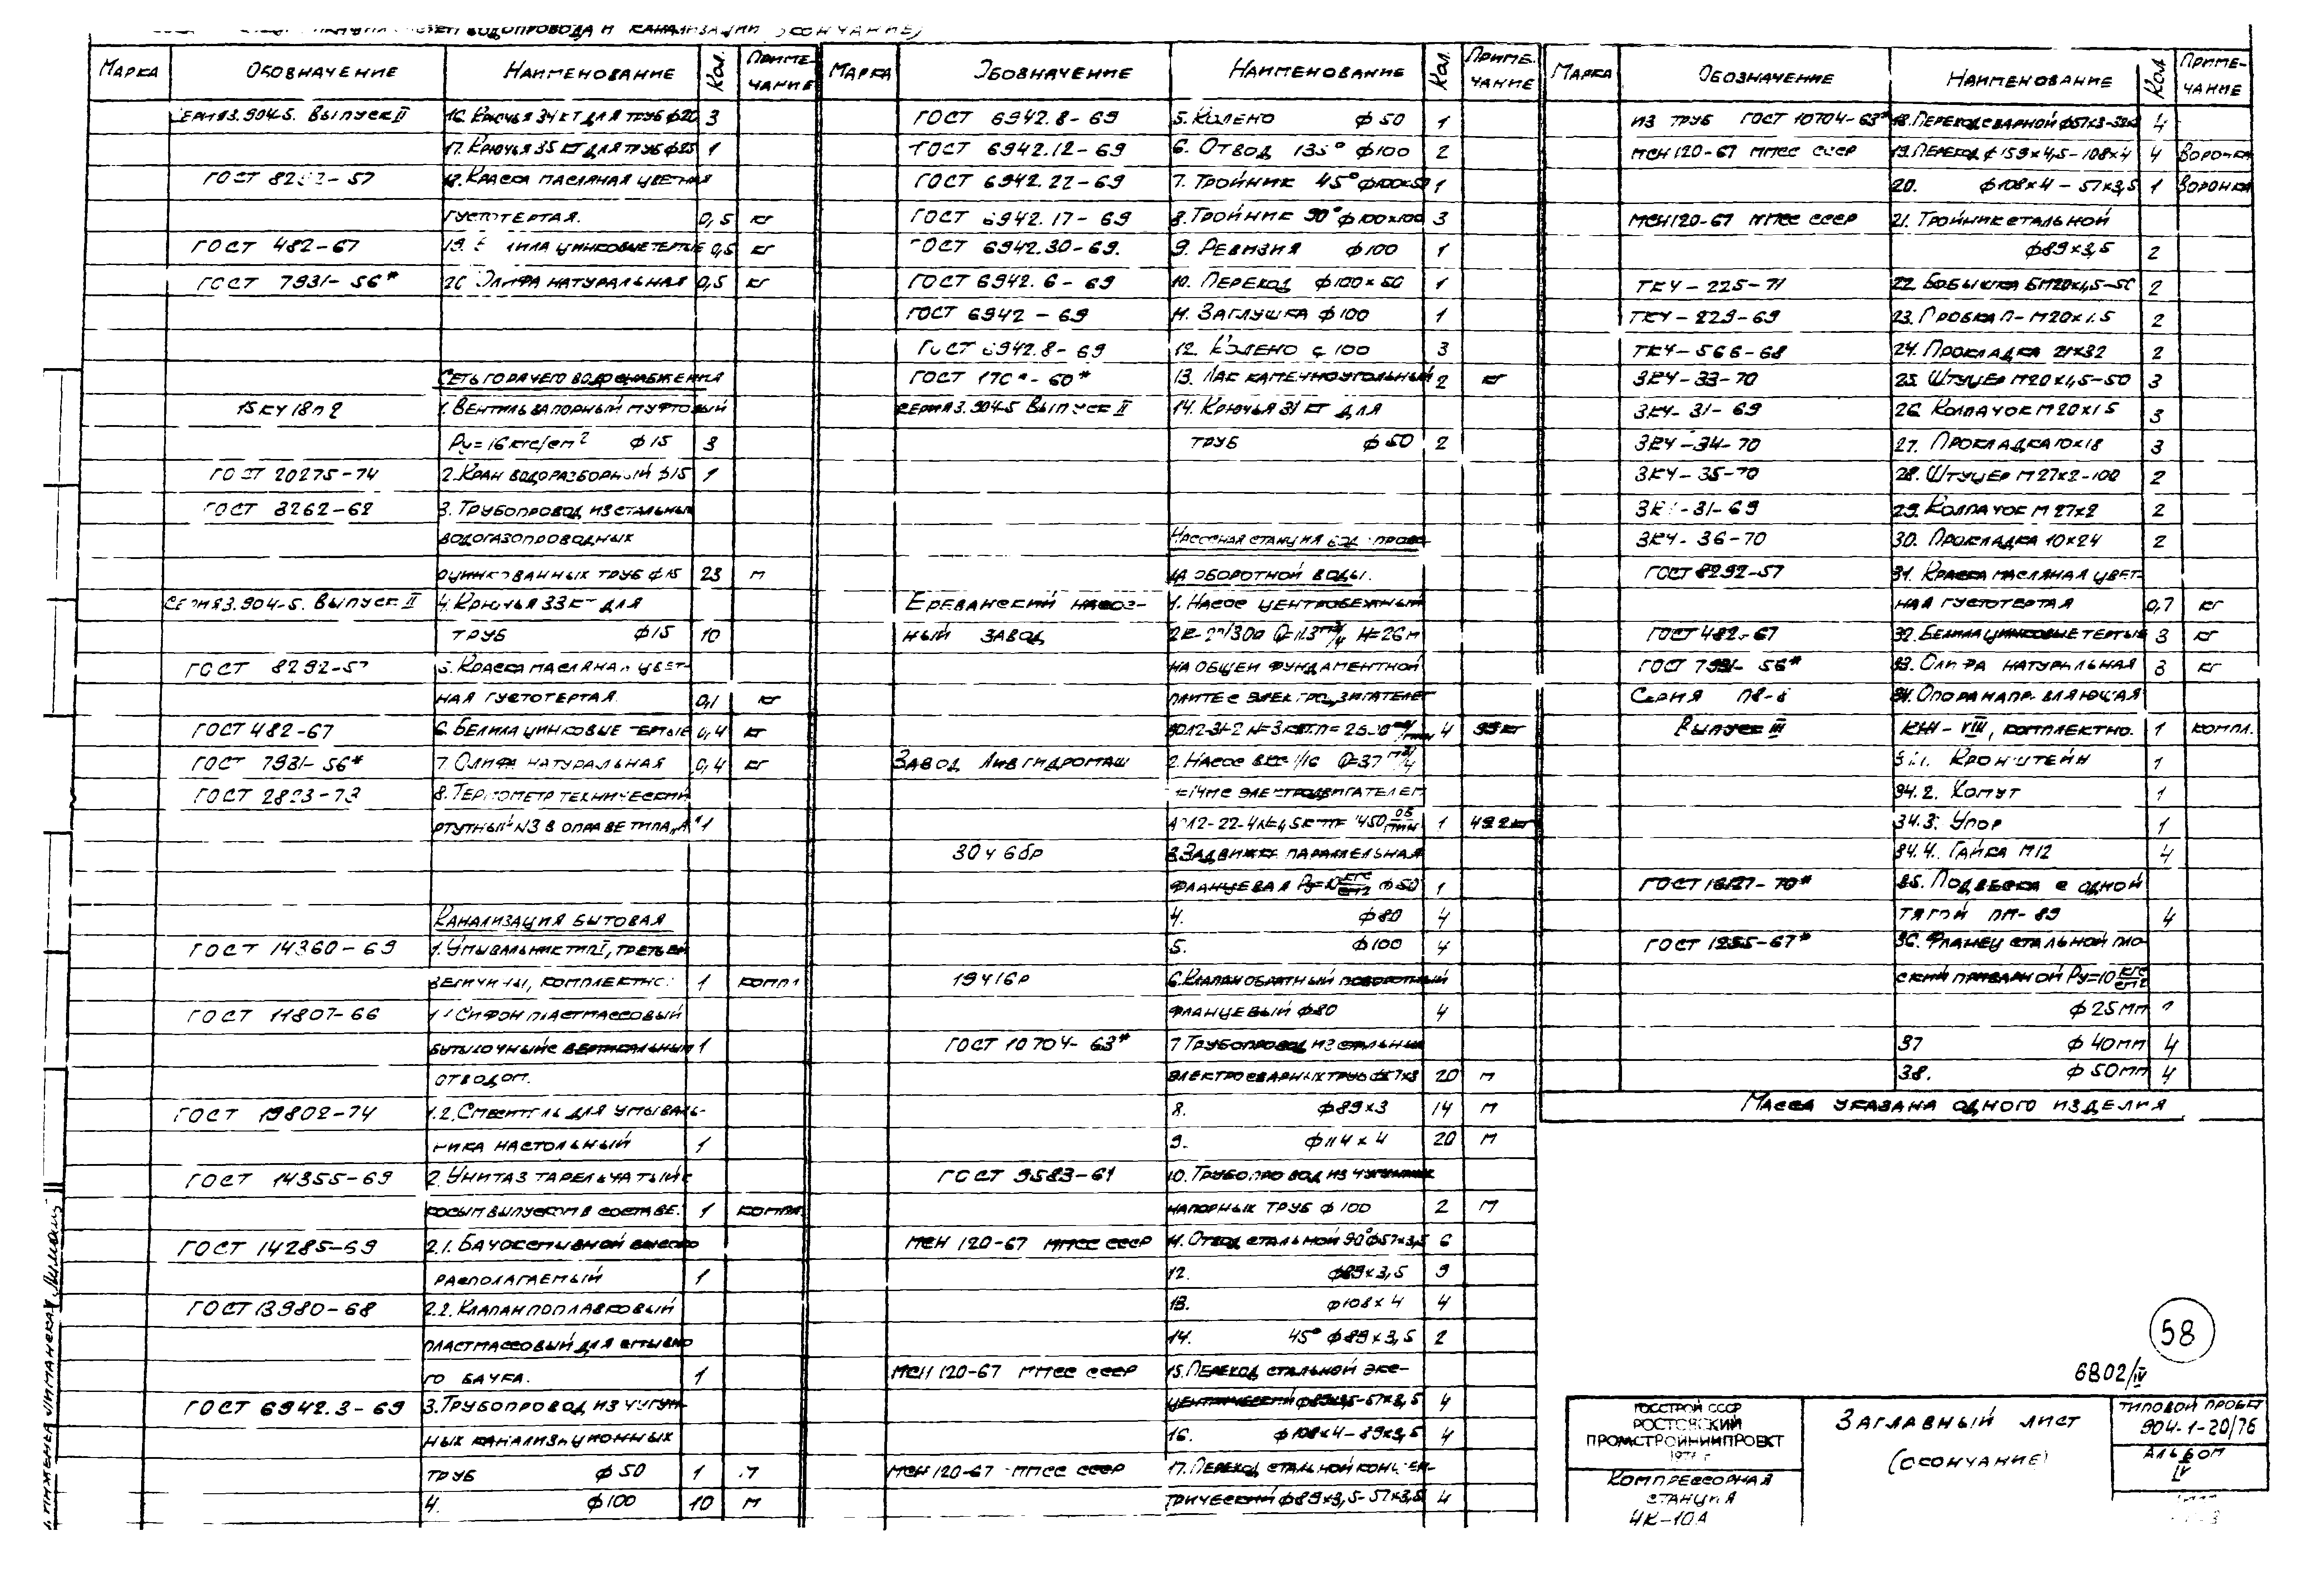 водопровода и канализации (окончание)
Марка Обозначение Наименование Кол. Примечание
Серия 3.904-5. Выпуск II 16. Крючья 34 кт для труб ф20 3
17. Крючья 35 кт для труб ф25 1
ГОСТ 8292-57 18. Краска масляная цветная
густотертая. 0,5 кг
ГОСТ 482-67 19. Белила цинковые тертые 0,5 кг
ГОСТ 7931-56* 20. Олифа натуральная 0,5 кг
Сеть горячего водоснабжения
15кч18п2 1. Вентиль запорный муфтовый
Ру=16кгс/см² ф15 3
ГОСТ 20275-74 2. Кран водоразборный ф15 1
ГОСТ 3262-62 3. Трубопровод из стальных
водогазопроводных
оцинкованных труб ф15 23 м
Серия 3.904-5. Выпуск II 4. Крючья 33кт для
труб ф15 10
ГОСТ 8292-57 5. Краска масляная цвет-
ная густотертая 0,1 кг
ГОСТ 482-67 6. Белила цинковые тертые 0,4 кг
ГОСТ 7931-56* 7. Олифа натуральная 0,4 кг
ГОСТ 2823-73 8. Термометр технический
ртутный N3 в оправе типа „А" 1
Канализация бытовая
ГОСТ 14360-69 1. Умывальник тип I, третьей
величины, комплектно: 1 компл
ГОСТ 11807-66 1.1 Сифон пластмассовый
бутылочный с вертикальным 1
отводом.
ГОСТ 19802-74 1.2. Смеситель для умываль-
ника настольный 1
ГОСТ 14355-69 2. Унитаз тарельчатый с
косым выпуском в составе: 1 компл.
ГОСТ 14285-69 2.1. Бачок смывной высоко
располагаемый 1
ГОСТ 13980-68 2.2. Клапан поплавковый
пластмассовый для смывно
го бачка. 1
ГОСТ 6942.3-69 3. Трубопровод из чугун-
ных канализационных
труб ф50 1 м
4. ф100 10 м
Марка Обозначение Наименование Кол. Примечание
ГОСТ 6942.8-69 5. Колено ф50 1
ГОСТ 6942.12-69 6. Отвод 135° ф100 2
ГОСТ 6942.22-69 7. Тройник 45° ф100х50 1
ГОСТ 6942.17-69 8. Тройник 90° ф100х100 3
ГОСТ 6942.30-69. 9. Ревизия ф100 1
ГОСТ 6942.6-69 10. Переход ф100х50 1
ГОСТ 6942-69 11. Заглушка ф100 1
ГОСТ 6942.8-69 12. Колено ф100 3
ГОСТ 60* 13. Лак каменноугольный 2 кг
Серия 3.904-5 Выпуск II 14. Крючья 31 кт для
труб ф50 2
Насосная станция водопрово-
да оборотной воды.
Ереванский насос- 1. Насос центробежный
ный завод H=26м
на общей фундаментной
плите с электродвигателем
N=3квт 4 95кг
Завод Ливгидромаш 2. Насос ВКС 1/16
H=14м с электродвигателем
об/мин 1
30ч6бр 3. Задвижка параллельная
фланцевая Ру=10 кгс/см2 ф50 1
4. ф80 4
5. ф100 4
19ч16р 6. Клапан обратный поворотный
фланцевый ф80 4
ГОСТ 10704-63* 7. Трубопровод из стальных
электросварных труб ф57х3 20 м
8. ф89х3 14 м
9. ф114х4 20 м
ГОСТ 9583-61 10. Трубопровод из чугунных
напорных труб ф100 2 м
МСН 120-67 ММСС СССР 11. Отвод стальной 90° ф57х3,5 6
12. ф89х3,5 9
13. ф108х4 4
14. 45° ф89х3,5 2
МСН 120-67 ММСС СССР 15. Переход стальной экс-
центрический ф89х3,5-57х3,5 4
16. ф108х4-89х3,5 4
МСН 120-67 ММСС СССР 17. Переход стальной концен-
трический ф89х3,5-57х3,5 4
Марка Обозначение Наименование Кол Примечание
Из труб ГОСТ 10704-63* 18. Переход сварной 4
МСН 120-67 ММСС СССР 19. Переход ф159х4,5-108х4 4 Воронка
20. ф108х4-57х3,5 1 Воронка
МСН 120-67 ММСС СССР 21. Тройник стальной
ф89х3,5 2
ТКЧ-225-71 22. Бобышка БМ20х1,5-50 2
ТКЧ-229-69 23. Пробка П-М20х1.5 2
ТКЧ-566-68 24. Прокладка 21х32 2
ЗКЧ-33-70 25. Штуцер М20х1,5-50 3
ЗКЧ-31-69 26. Колпачок М20х1 5 3
ЗКЧ-34-70 27. Прокладка 10х18 3
ЗКЧ-35-70 28. Штуцер М27х2-100 2
ЗКЧ-31-69 29. Колпачок М27х2 2
ЗКЧ-36-70 30. Прокладка 10х24 2
ГОСТ 8292-57 31. Краска масляная цвет-
ная густотертая 0,7 кг
ГОСТ 482-67 32. Белила цинковые тертые 3 кг
ГОСТ 7931-56* 33. Олифа натуральная 3 кг
Серия 34. Опора направляющая
Выпуск III VIII, комплектно. 1 компл.
34.1. Кронштейн 1
34.2. Хомут 1
34.3. Упор 1
34.4. Гайка М12 4
ГОСТ 16127-70* 35. Подвеска с одной
тягой ПМ-89 4
ГОСТ 1255-67* 36. Фланец стальной пло-
ский приварной Ру=10 кгс/см2
ф25мм
37 ф40мм 4
38. ф50мм 4
Масса указана одного изделия
58
6802/IV
Госстрой СССР
Ростовский
Промстройниипроект
Компрессорная
станция
4К-10А
Заглавный лист
(окончание)
Типовой проект
904-1-20/76
Альбом
IV
Лиманская